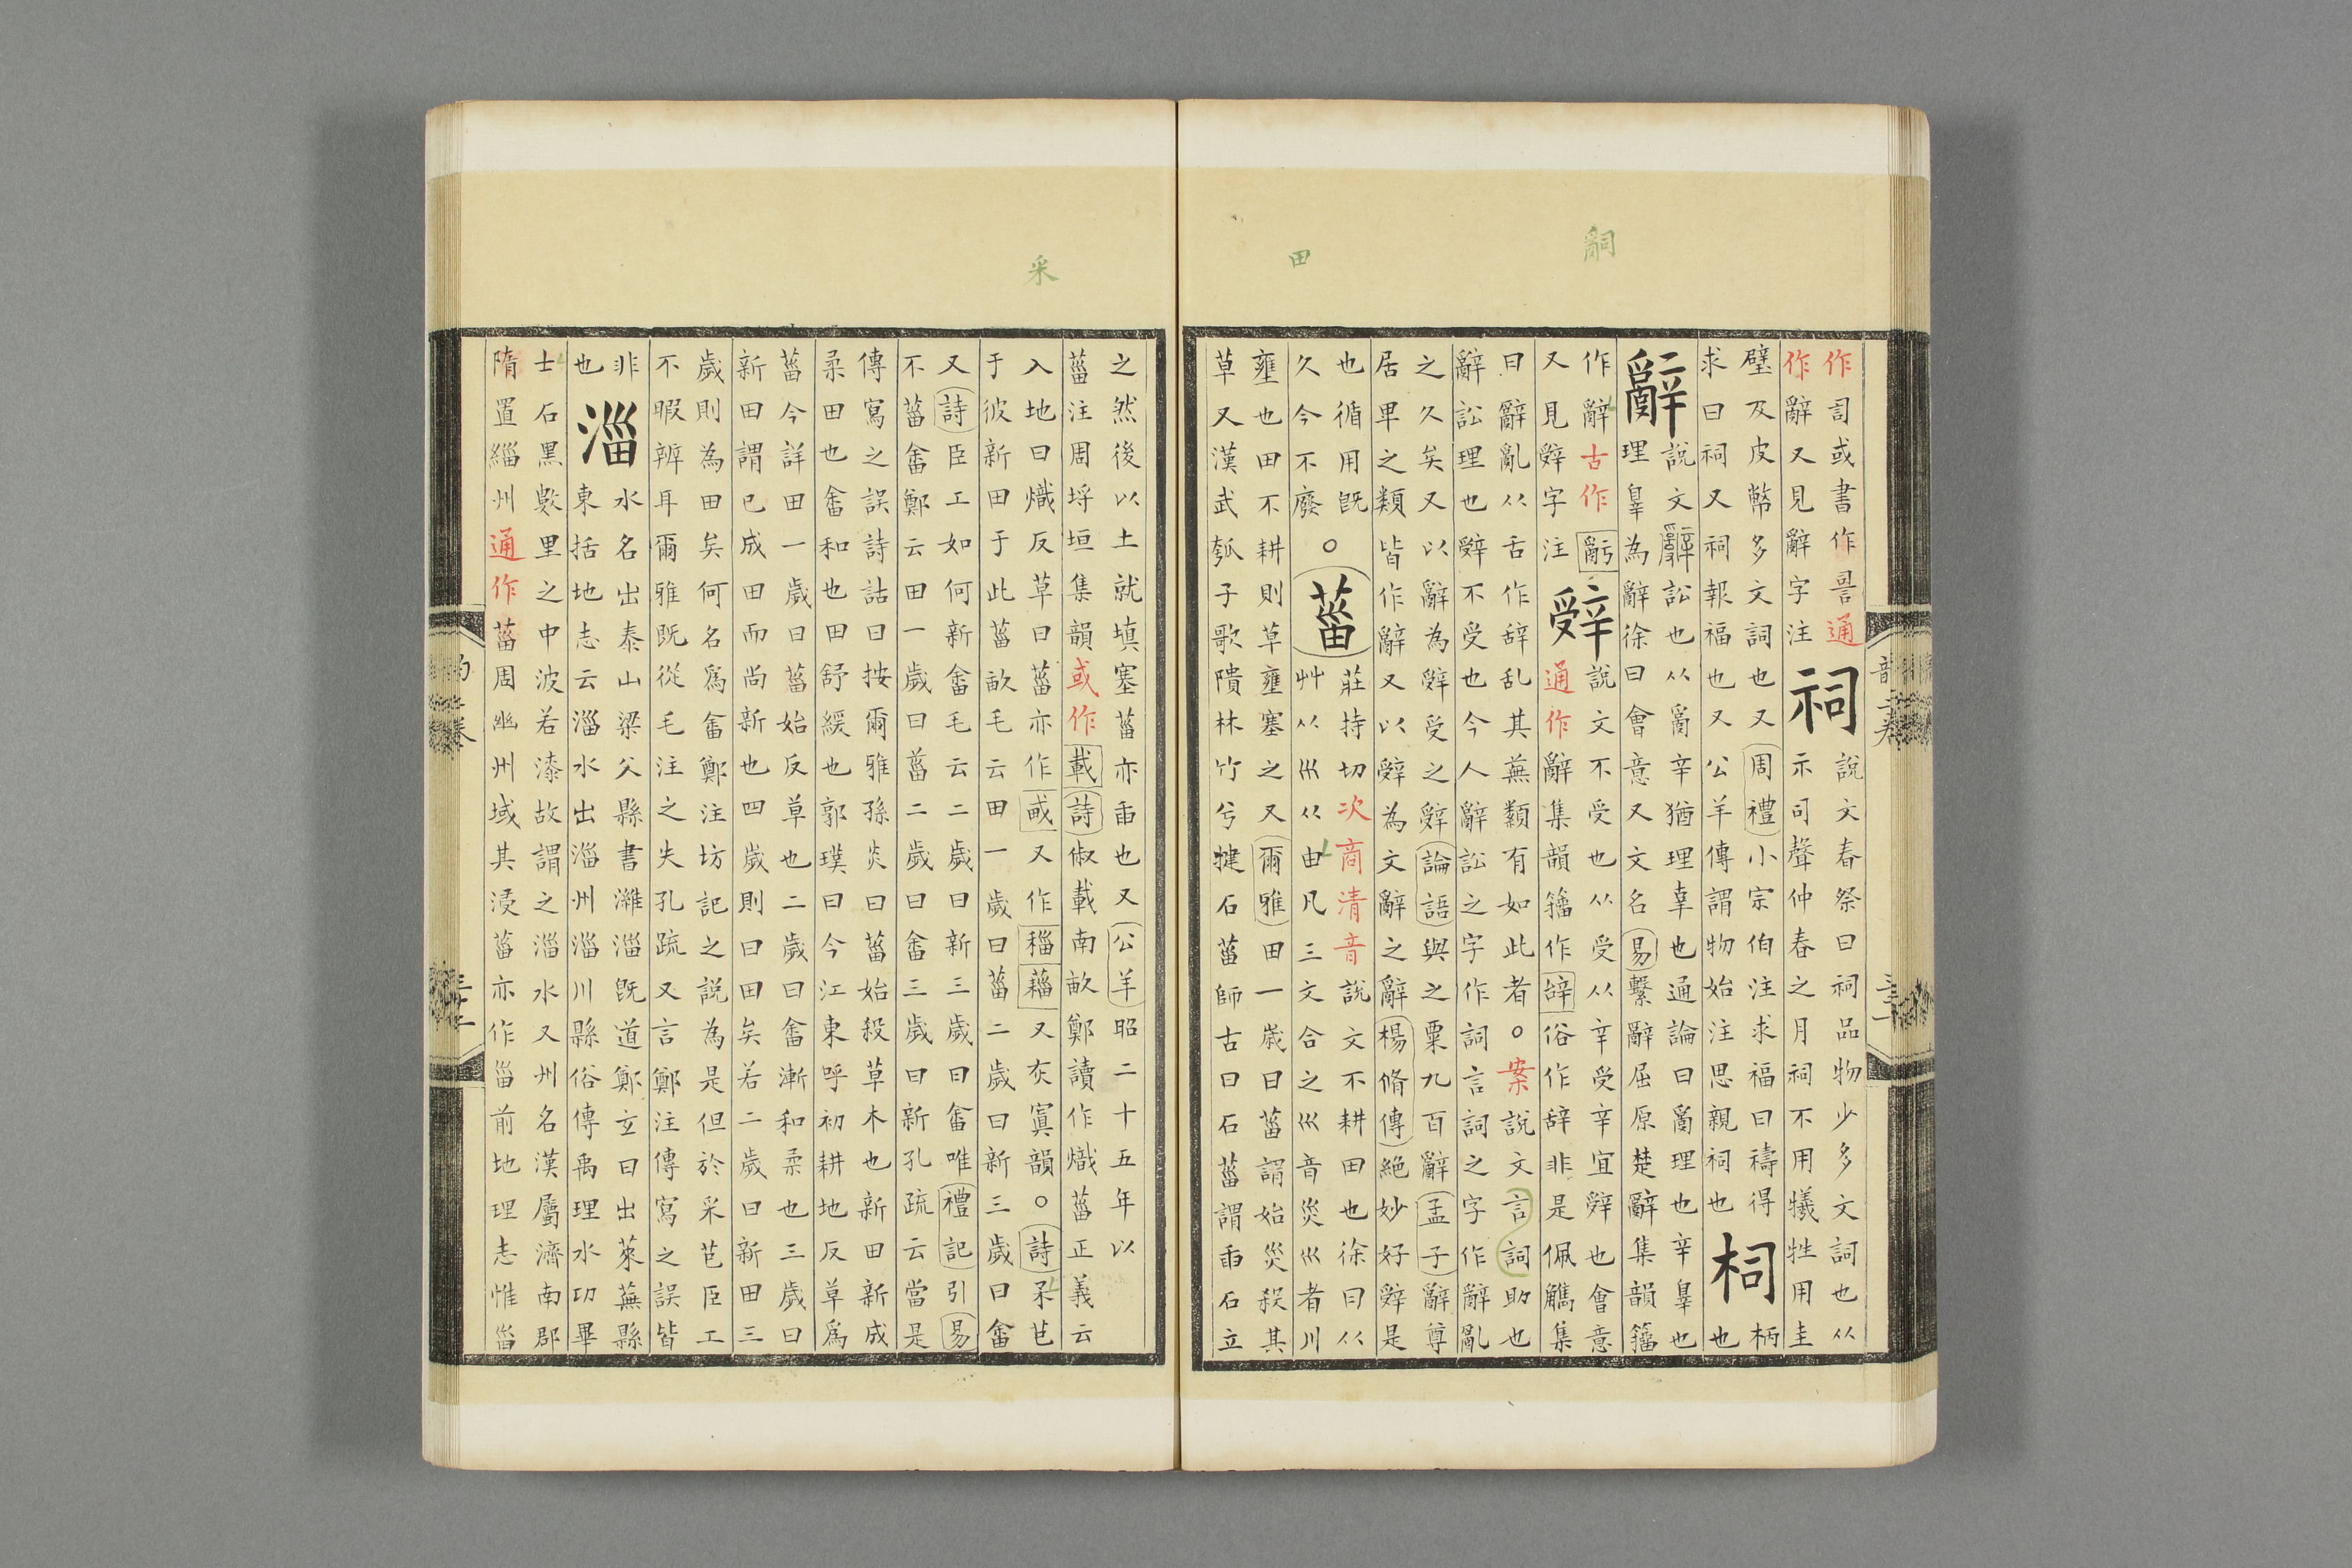 嗣
田
作司或書作𧥝通
作辭又見辭字注
祠
說文春祭曰祠品物少多文詞也从
示司聲仲春之月祠不用犧牲用圭
璧及皮幣多文詞也又周禮小宗伯注求福曰禱得
求曰祠又祠報福也又公羊傳謂物始注思親祠也
柌
柄
也
辭
說文辭訟也从𤔔辛猶理辜也通論曰𤔔理也辛辠也
理辠為辭徐曰會意又文名易繫辭屈原楚辭集韻籀
作辭古作𤔲
又見辤字注
辤
說文不受也从受从辛受辛宜辤也會意
通作辭集韻籀作辝俗作辞非是佩觿集
曰辭亂从舌作辞乱其蕪纇有如此者○案說文言詞助也
辭訟理也辤不受也今人辭訟之字作詞言詞之字作辭亂
之久矣又以辭為辤受之辤論語與之粟九百辭孟子辭尊
居卑之類皆作辭又以辤為文辭之辭楊脩傳絕妙好辤是
也循用旣
久今不廢○
菑
莊持切次商清音說文不耕田也徐曰从
艸从巛从田凡三文合之巛音災巛者川
壅也田不耕則草壅塞之又爾雅田一歲曰菑謂始災殺其
草又漢武瓠子歌隤林竹兮揵石菑師古曰石菑謂臿石立
采
之然後以土就填塞菑亦臿也又公羊昭二十五年以
菑注周埒垣集韻或作載詩俶載南畝鄭讀作熾菑正義云
入地曰熾反草曰菑亦作甾又作稵䅔又灰寘韻○詩采芑
于彼新田于此菑畝毛云田一歲曰菑二歲曰新三歲曰畬
又詩臣工如何新畬毛云二歲曰新三歲曰畬唯禮記引易
不菑畬鄭云田一歲曰菑二歲曰畬三歲曰新孔疏云當是
傳寫之誤詩詁曰按爾雅孫炎曰菑始殺草木也新田新成
柔田也畬和也田舒緩也郭璞曰今江東呼初耕地反草為
菑今詳田一歲曰菑始反草也二歲曰畬漸和柔也三歲曰
新田謂已成田而尚新也四歲則曰田矣若二歲曰新田三
歲則為田矣何名為畬鄭注坊記之說為是但於采芑臣工
不暇辨耳爾雅旣從毛注之失孔疏又言鄭注傳寫之誤皆
非
也
淄
水名出泰山梁父縣書濰淄旣道鄭玄曰出萊蕪縣
東括地志云淄水出淄州淄川縣俗傳禹理水功畢
土石黑數里之中波若漆故謂之淄水又州名漢屬濟南郡
隋置緇州通作菑周幽州域其浸菑亦作甾前地理志惟甾